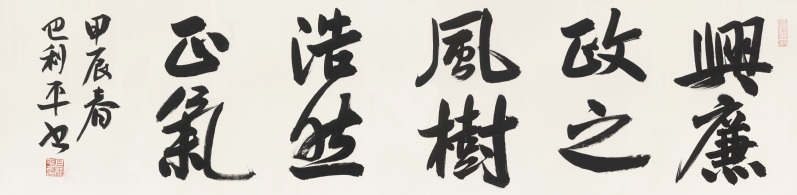 興廉
政之
風樹
浩然
正氣
甲辰春
巴利平书